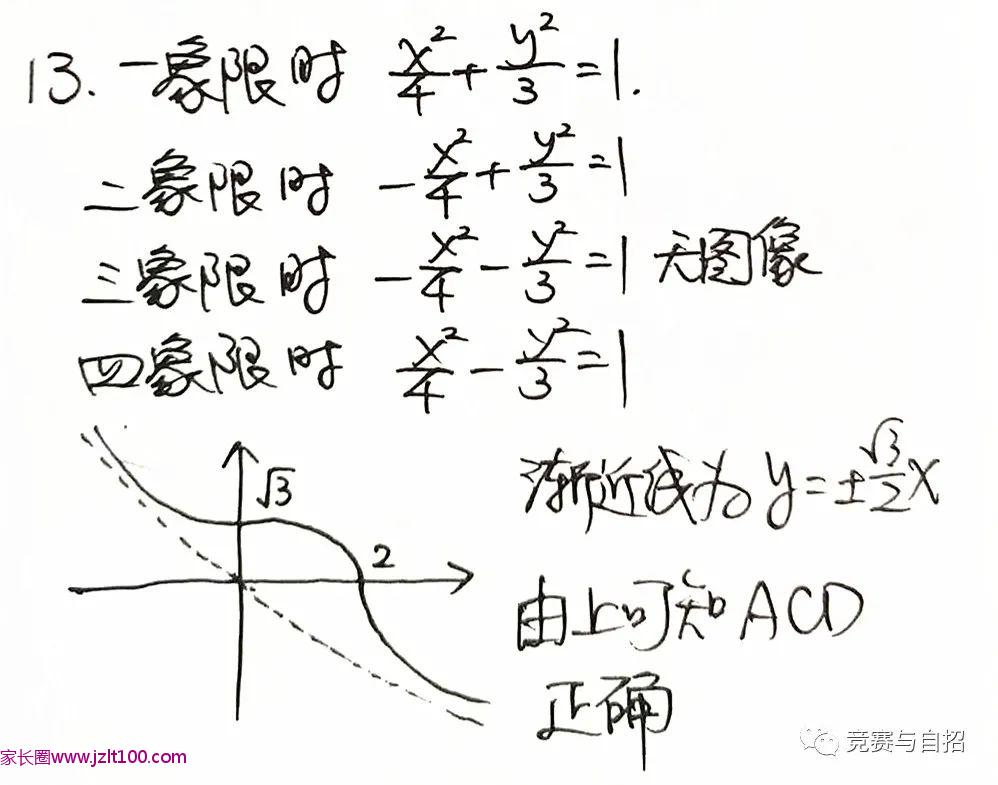 13. 一象限时 x²/4 + y²/3 = 1.
二象限时 -x²/4 + y²/3 = 1
三象限时 -x²/4 - y²/3 = 1 无图像
四象限时 x²/4 - y²/3 = 1
√3
2
渐近线为 y = ±√3/2 x
由上可知 ACD
正确
竞赛与自招
家长圈www.jzlt100.com